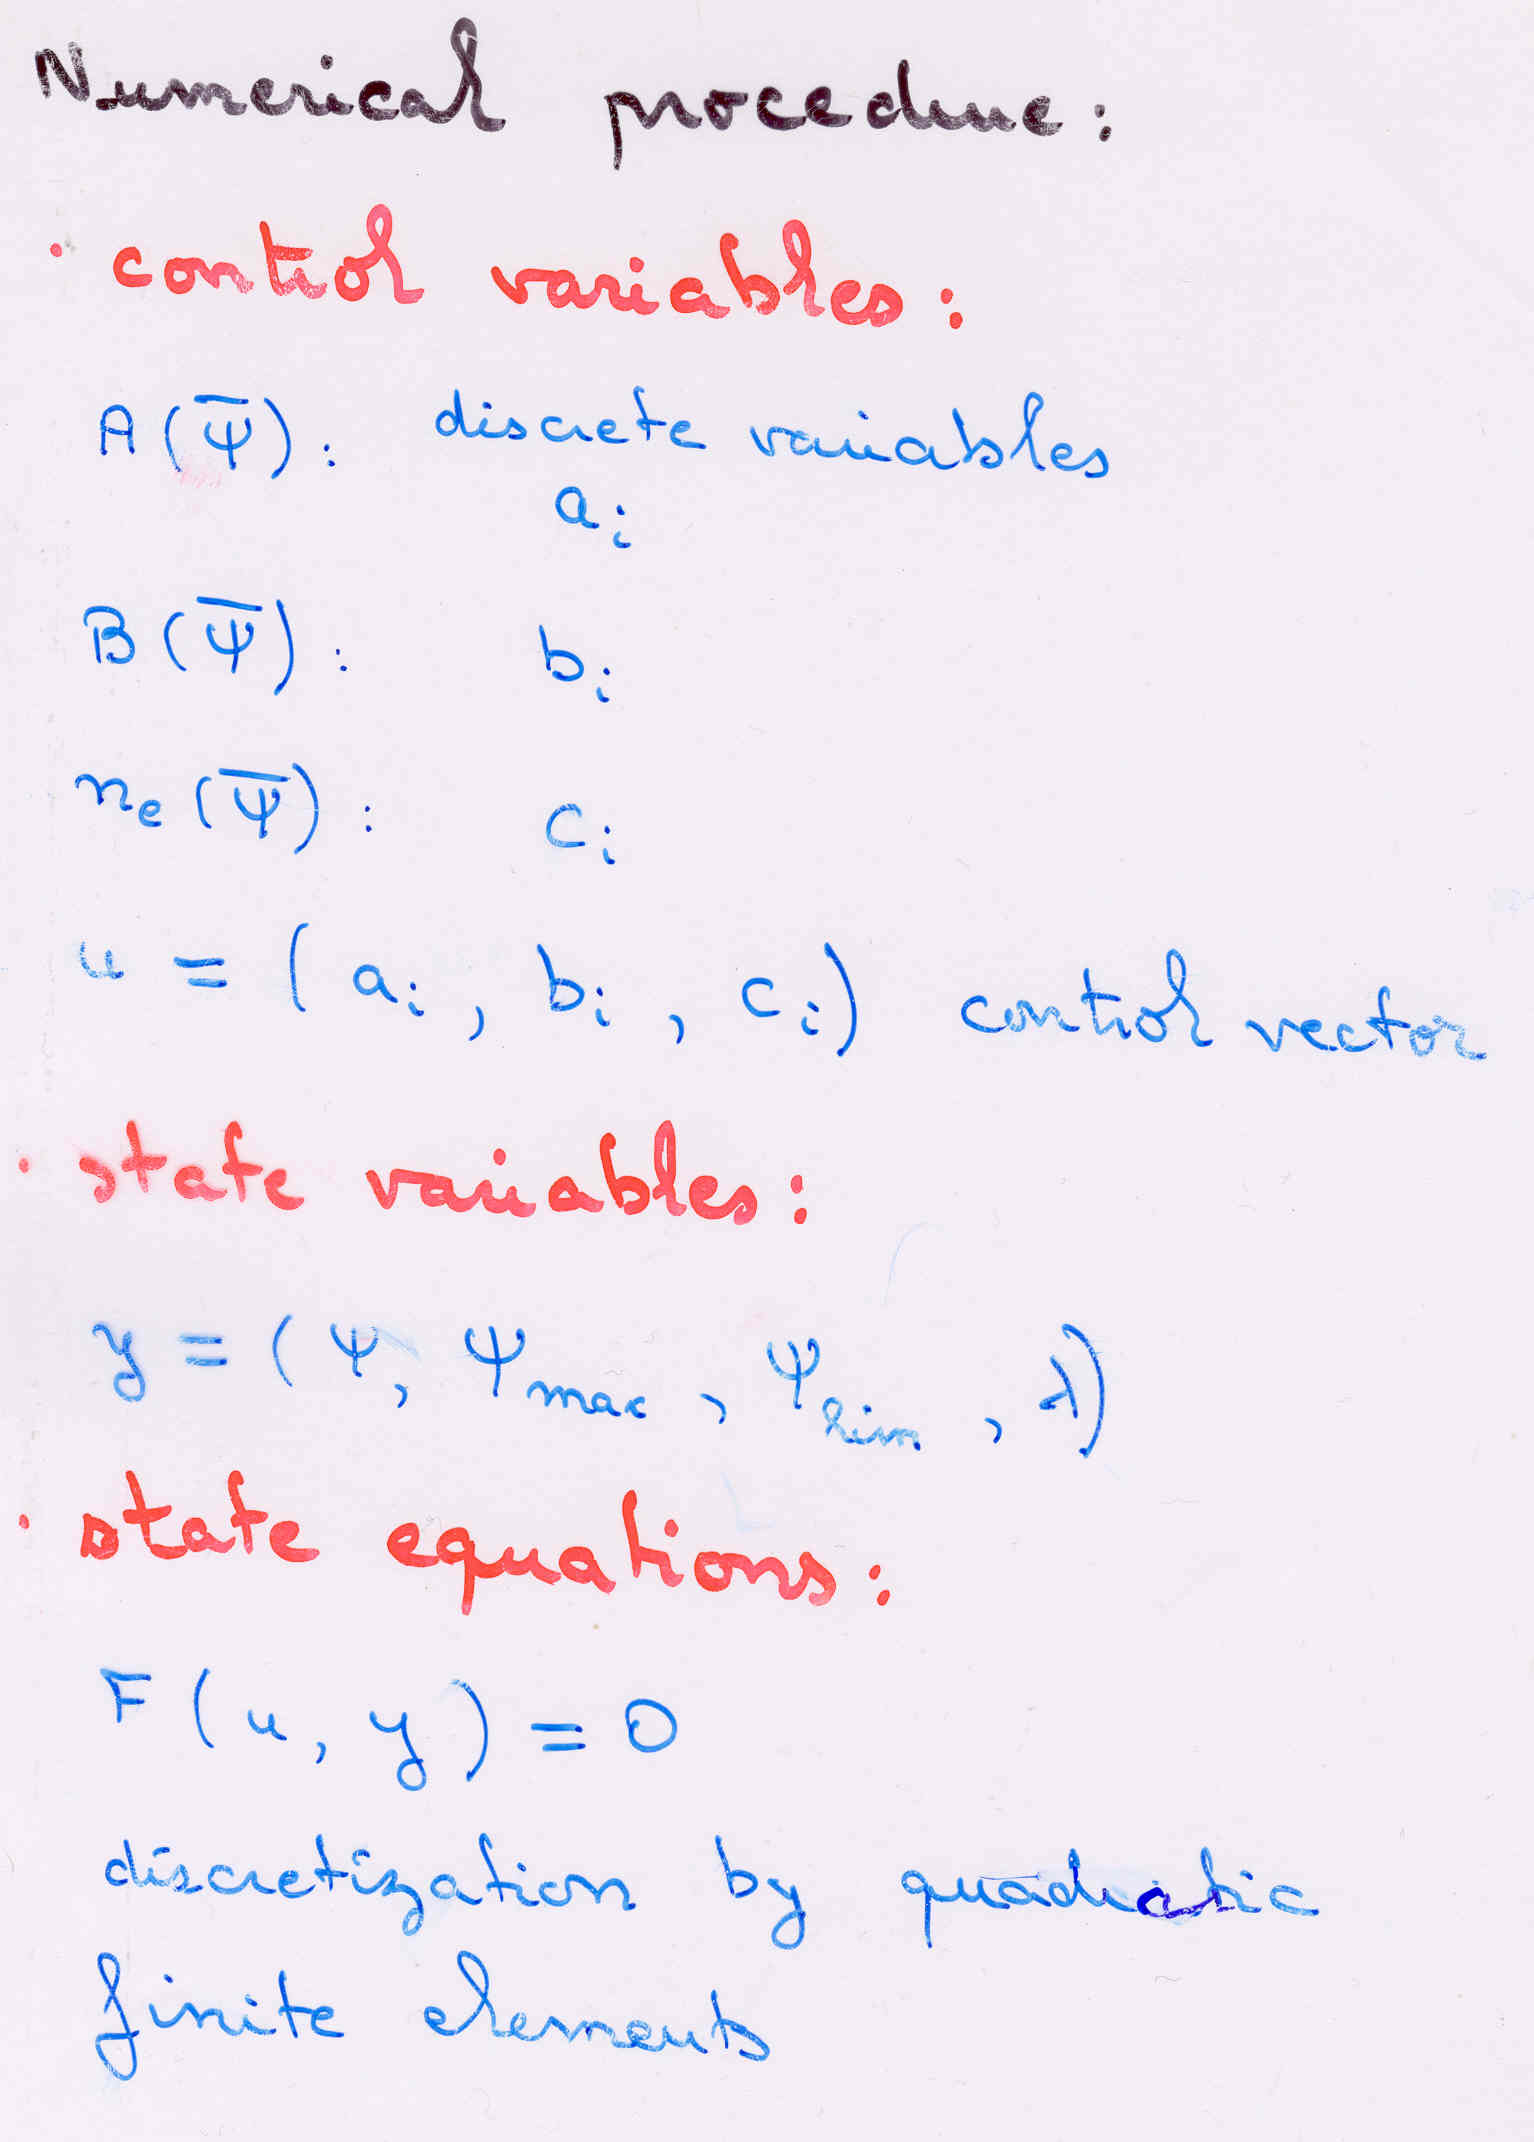 Numerical procedure:
· control variables:
A(Ψ̅): discrete variables
a_i
B(Ψ̅): b_i
n_e(Ψ̅): c_i
u = (a_i, b_i, c_i) control vector
· state variables:
y = (Ψ, Ψ_max, Ψ_lim, λ)
· state equations:
F(u, y) = 0
discretization by quadratic
finite elements